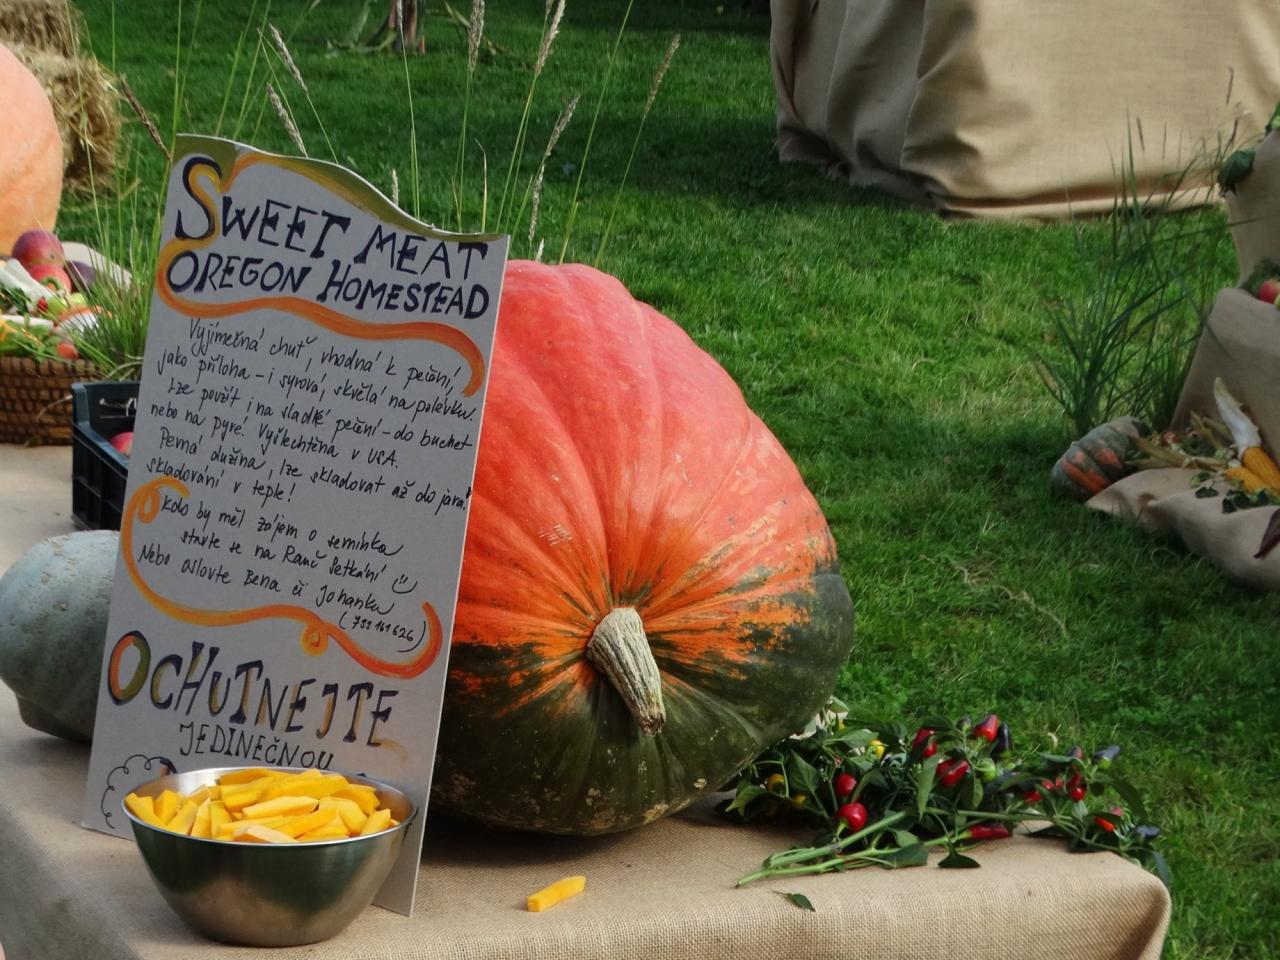 SWEET MEAT
OREGON HOMESTEAD
Vyjímečná chuť, vhodná k pečení,
jako příloha - i syrová, skvělá na polévku.
Lze použít i na sladké pečení - do buchet
nebo na pyré. Vyšlechtěna v USA.
Pevná dužina, lze skladovat až do jara!
skladování v teple!
Kdo by měl zájem o semínka
stavte se na Ranč Setkání
Nebo oslovte Bena či Johanku
OCHUTNEJTE
JEDINEČNOU